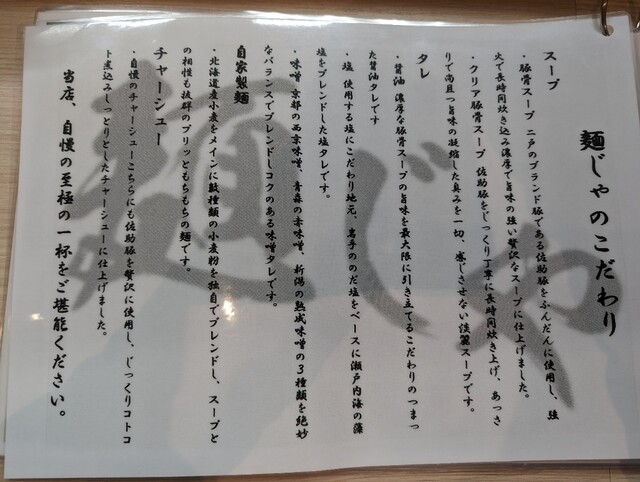 麺じゃのこだわり
スープ
・豚骨スープ 二戸のブランド豚である佐助豚をふんだんに使用し、強
火で長時間炊き込み濃厚で旨味の強い贅沢なスープに仕上げました。
・クリア豚骨スープ 佐助豚をじっくり丁寧に長時間炊き上げ、あっさ
りで尚且つ旨味の凝縮した臭みを一切、感じさせない淡麗スープです。
タレ
・醤油 濃厚な豚骨スープの旨味を最大限に引き立てるこだわりのつまっ
た醤油タレです
・塩 使用する塩にこだわり地元、岩手ののだ塩をベースに瀬戸内海の藻
塩をブレンドした塩タレです。
・味噌 京都の西京味噌、青森の赤味噌、新潟の熟成味噌の3種類を絶妙
なバランスでブレンドしコクのある味噌タレです。
自家製麺
・北海道産小麦をメインに数種類の小麦粉を独自でブレンドし、スープと
の相性も抜群のプリッともちもちの麺です。
チャーシュー
・自慢のチャーシューこちらにも佐助豚を贅沢に使用し、じっくりコトコ
ト煮込みしっとりとしたチャーシューに仕上げました。
当店、自慢の至極の一杯をご堪能ください。
麺じゃ